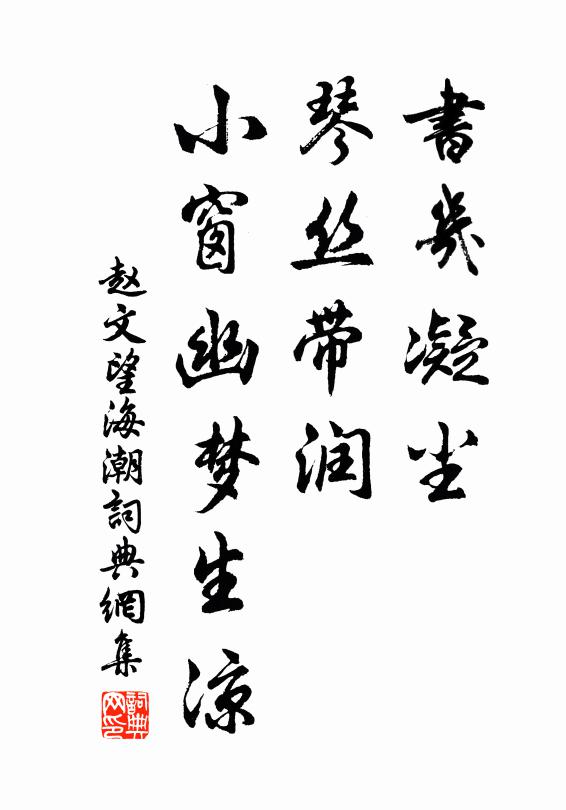 書几凝尘
琴丝带润
小窗幽梦生凉
赵文望海潮詞典網集
詞典网印